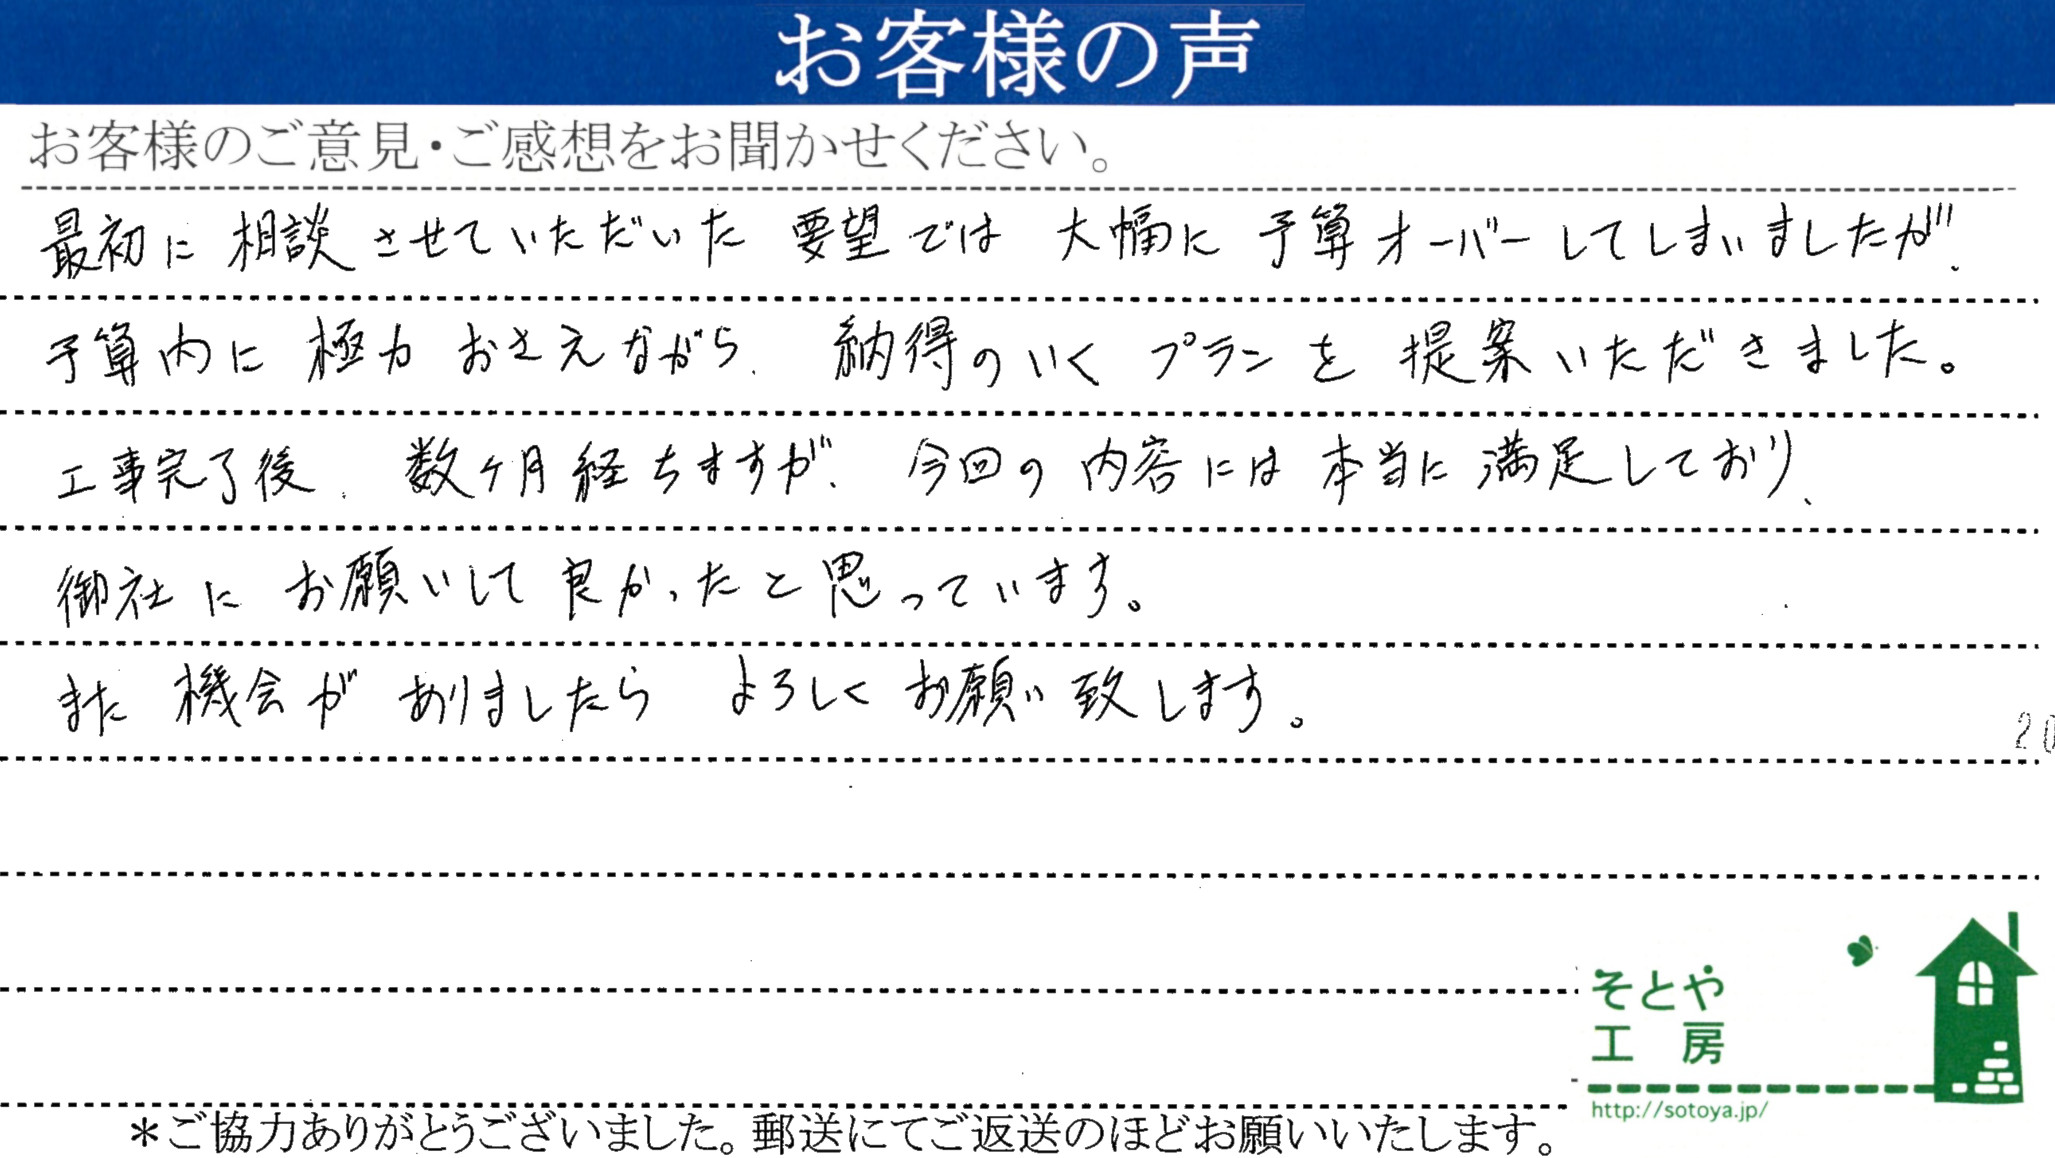 お客様の声
お客様のご意見・ご感想をお聞かせください。
最初に相談させていただいた要望では大幅に予算オーバーしてしまいましたが、
予算内に極力おさえながら、納得のいくプランを提案いただきました。
工事完了後、数ヶ月経ちますが、今回の内容には本当に満足しており、
御社にお願いして良かったと思っています。
また機会がありましたらよろしくお願い致します。
20
そとや
工房
http://sotoya.jp/
＊ご協力ありがとうございました。郵送にてご返送のほどお願いいたします。